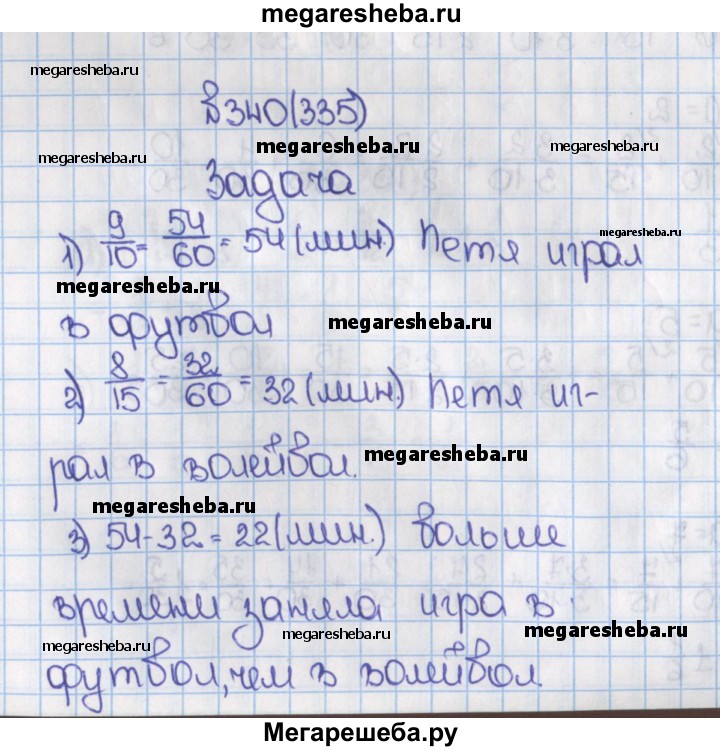 megaresheba.ru
megaresheba.ru
№340(335)
megaresheba.ru
megaresheba.ru
Задача
megaresheba.ru
1) 9/10 = 54/60 = 54 (мин.) Петя играл
megaresheba.ru
в футбол
megaresheba.ru
2) 8/15 = 32/60 = 32 (мин.) Петя иг-
megaresheba.ru
рал в волейбол.
megaresheba.ru
megaresheba.ru
3) 54-32=22(мин.) больше
времени заняла игра в
megaresheba.ru
megaresheba.ru
megaresheba.ru
футбол, чем в волейбол.
Мегарешеба.ру